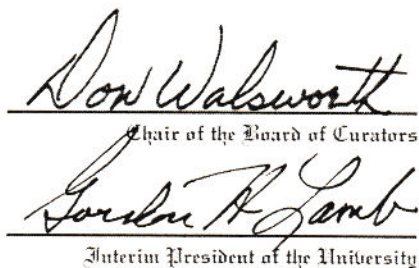 Don Walsworth
Chair of the Board of Curators
Gordon H Lamb
Interim President of the University